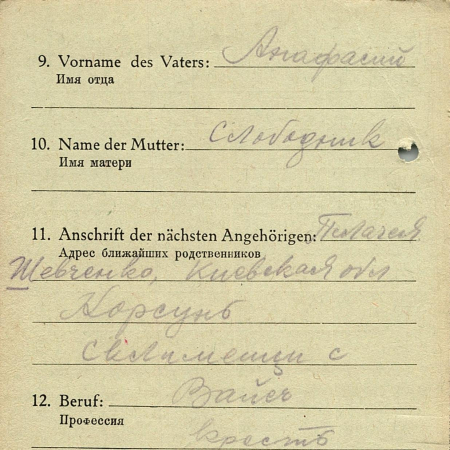 9. Vorname des Vaters: Анафасий
Имя отца
10. Name der Mutter: Слободник
Имя матери
11. Anschrift der nächsten Angehörigen: Пелагея
Адрес ближайших родственников
Шевченко, Киевская обл
Корсунь
с
12. Beruf:
Профессия
крестъ